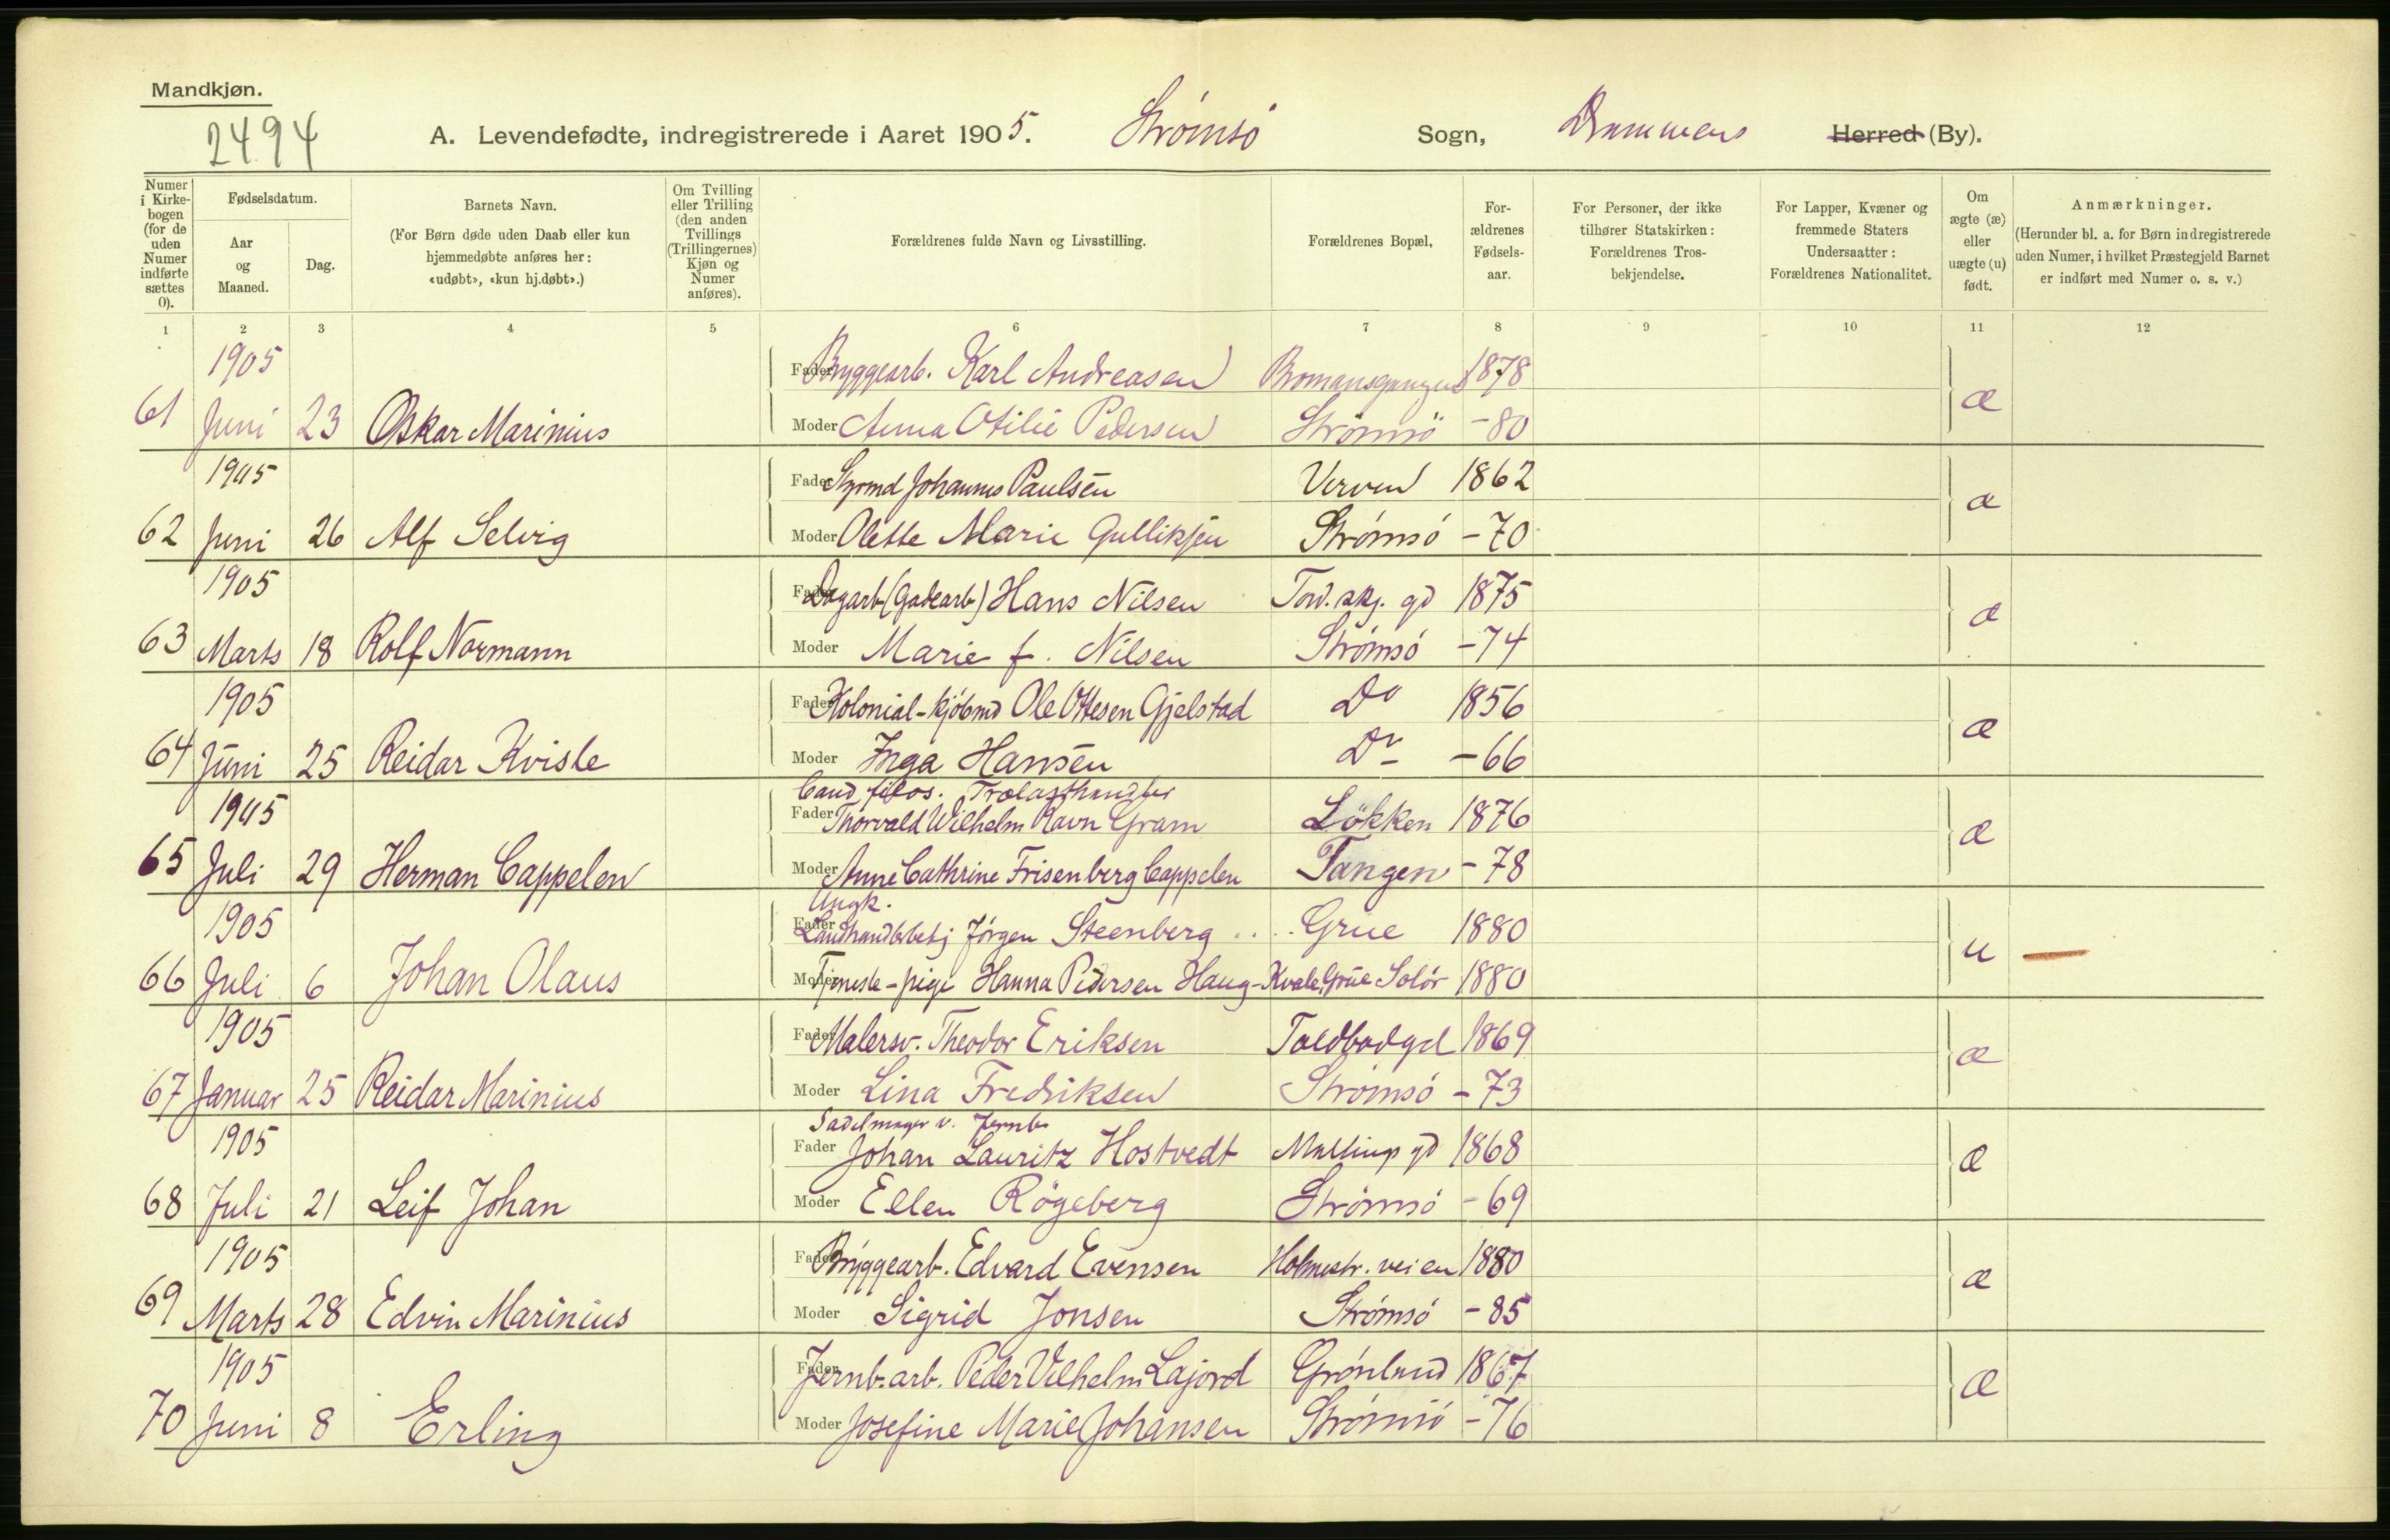 Mandkjøn.
2494
A. Levendefødte, indregistrerede i Aaret 1905. Strømsö Sogn, Drammens Herred (By).
Numer i Kirke-bogen (for de uden Numer indførte sættes 0).
Fødselsdatum.
Aar og Maaned.
Dag.
Barnets Navn.
(For Børn døde uden Daab eller kun hjemmedøbte anføres her: «udøbt», «kun hj.døbt».)
Om Tvilling eller Trilling (den anden Tvillings (Trillingernes) Kjøn og Numer anføres).
Forældrenes fulde Navn og Livsstilling.
Forældrenes Bopæl,
For-ældrenes Fødsels-aar.
For Personer, der ikke tilhører Statskirken: Forældrenes Tros-bekjendelse.
For Lapper, Kvæner og fremmede Staters Undersaatter: Forældrenes Nationalitet.
Om ægte (æ) eller uægte (u) født.
Anmærkninger.
(Herunder bl. a. for Børn indregistrerede uden Numer, i hvilket Præstegjeld Barnet er indført med Numer o. s. v.)
1 2 3 4 5 6 7 8 9 10 11 12
1905 Fader Bryggearb. Karl Andreasen Bromansgangen 1878
61 Juni 23 Oskar Marinius Moder Anna Otilie Pedersen Strömsö -80 æ
1905 Fader Styrmd Johannes Paulsen Verven 1862
62 Juni 26 Alf Selvig Moder Olette Marie Gulliksen Strömsö -70 æ
1905 Fader Dagarb (Gadearb) Hans Nilsen Tord. skj. gd 1875
63 Marts 18 Rolf Normann Moder Marie f. Nilsen Strömsö -74 æ
1905 Fader Kolonial-kjöbmd Ole Ottesen Gjelstad Do 1856
64 Juni 25 Reidar Kvisle Moder Inga Hansen Do -66 æ
Cand. filos. Trælasthandler
1905 Fader Thorvald Wilhelm Ravn Gram Lökken 1876
65 Juli 29 Herman Cappelen Moder Anne Cathrine Frisenberg Cappelen Tangen -78 æ
Ungk.
1905 Fader Landhandlerbetj Jörgen Steenberg .... Grue 1880
66 Juli 6 Johan Olaus Moder Tjeneste-pige Hanna Pedersen Haug- Kvale, Grue Solör 1880 u —
1905 Fader Malersv. Theodor Eriksen Toldbodgd 1869
67 Januar 25 Reidar Marinius Moder Lina Fredriksen Strömsö -73 æ
Sadelmager v. Jernb
1905 Fader Johan Lauritz Hostvedt gd 1868
68 Juli 21 Leif Johan Moder Ellen Rögeberg Strömsö -69 æ
1905 Fader Bryggearb. Edvard Evensen Holmestr. veien 1880
69 Marts 28 Edvin Marinius Moder Sigrid Jonsen Strömsö -85 æ
1905 Fader Jernb. arb. Peder Vilhelm Lajord Grönland 1867
70 Juni 8 Erling Moder Josefine Marie Johansen Strömsö -76 æ